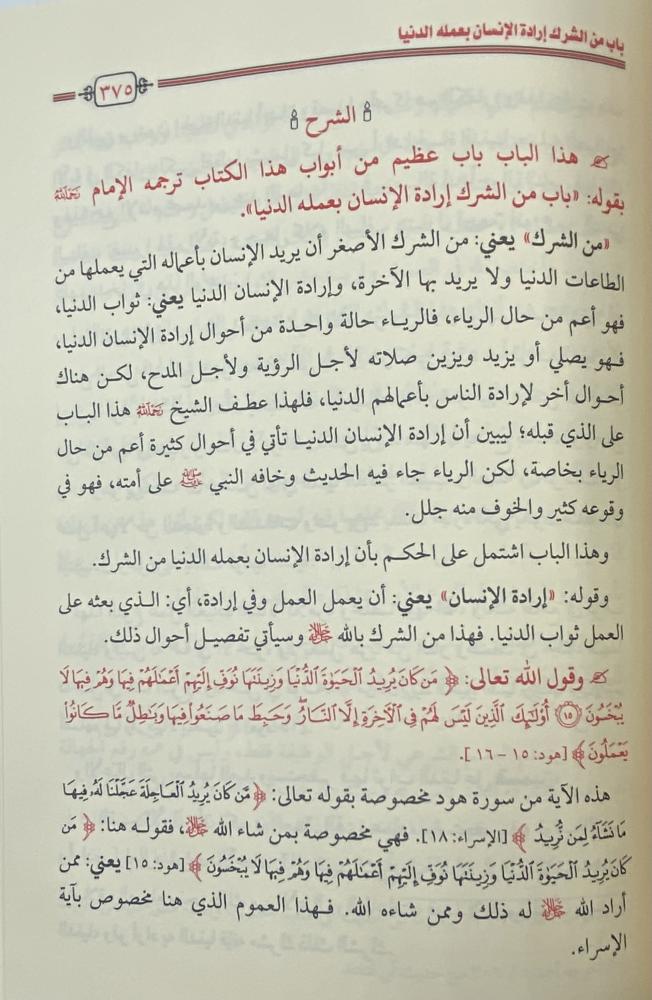 باب من الشرك إرادة الإنسان بعمله الدنيا
٣٧٥
الشرح
هذا الباب باب عظيم من أبواب هذا الكتاب ترجمه الإمام رَحِمَهُ اللَّهُ
بقوله: «باب من الشرك إرادة الإنسان بعمله الدنيا».
«من الشرك» يعني: من الشرك الأصغر أن يريد الإنسان بأعماله التي يعملها من
الطاعات الدنيا ولا يريد بها الآخرة، وإرادة الإنسان الدنيا يعني: ثواب الدنيا،
فهو أعم من حال الرياء، فالريـاء حالة واحـدة من أحوال إرادة الإنسان الدنيا،
فـهو يصلي أو يزيد ويزين صلاته لأجـل الرؤية ولأجـل المدح، لكـن هناك
أحـوال أخر لإرادة الناس بأعمالهم الدنيا، فلهذا عطـف الشيخ رَحِمَهُ اللَّهُ هذا البـاب
على الذي قبله؛ ليبين أن إرادة الإنسان الدنيـا تأتي في أحوال كثيرة أعم من حال
الرياء بخاصة، لكن الرياء جاء فيه الحديث وخافه النبي ﷺ على أمته، فهو في
وقوعه كثير والخوف منه جلل.
وهذا الباب اشتمل على الحكـم بأن إرادة الإنسان بعمله الدنيا من الشرك.
وقوله: «إرادة الإنسان» يعني: أن يعمل العمل وفي إرادة، أي: الـذي بعثه على
العمل ثواب الدنيا. فهذا من الشرك بالله ﷻ وسيأتي تفصيـل أحوال ذلك.
وقول الله تعالى: ﴿مَن كَانَ يُرِيدُ ٱلْحَيَوٰةَ ٱلدُّنْيَا وَزِينَتَهَا نُوَفِّ إِلَيْهِمْ أَعْمَٰلَهُمْ فِيهَا وَهُمْ فِيهَا لَا
يُبْخَسُونَ ۝١٥ أُوْلَٰٓئِكَ ٱلَّذِينَ لَيْسَ لَهُمْ فِي ٱلْأٓخِرَةِ إِلَّا ٱلنَّارُ ۖ وَحَبِطَ مَا صَنَعُواْ فِيهَا وَبَٰطِلٌ مَّا كَانُواْ
يَعْمَلُونَ﴾ [هود: ١٥ – ١٦].
هذه الآية من سورة هود مخصوصة بقوله تعالى: ﴿مَّن كَانَ يُرِيدُ ٱلْعَاجِلَةَ عَجَّلْنَا لَهُۥ فِيهَا
مَا نَشَآءُ لِمَن نُّرِيدُ﴾ [الإسراء: ١٨]. فهي مخصوصة بمن شاء الله ﷻ، فقولـه هنا: ﴿مَن
كَانَ يُرِيدُ ٱلْحَيَوٰةَ ٱلدُّنْيَا وَزِينَتَهَا نُوَفِّ إِلَيْهِمْ أَعْمَٰلَهُمْ فِيهَا وَهُمْ فِيهَا لَا يُبْخَسُونَ﴾ [هود: ١٥] يعني: ممن
أراد الله ﷻ له ذلك وممن شاءه الله. فـهذا العموم الذي هنا مخصوص بآية
الإسراء.